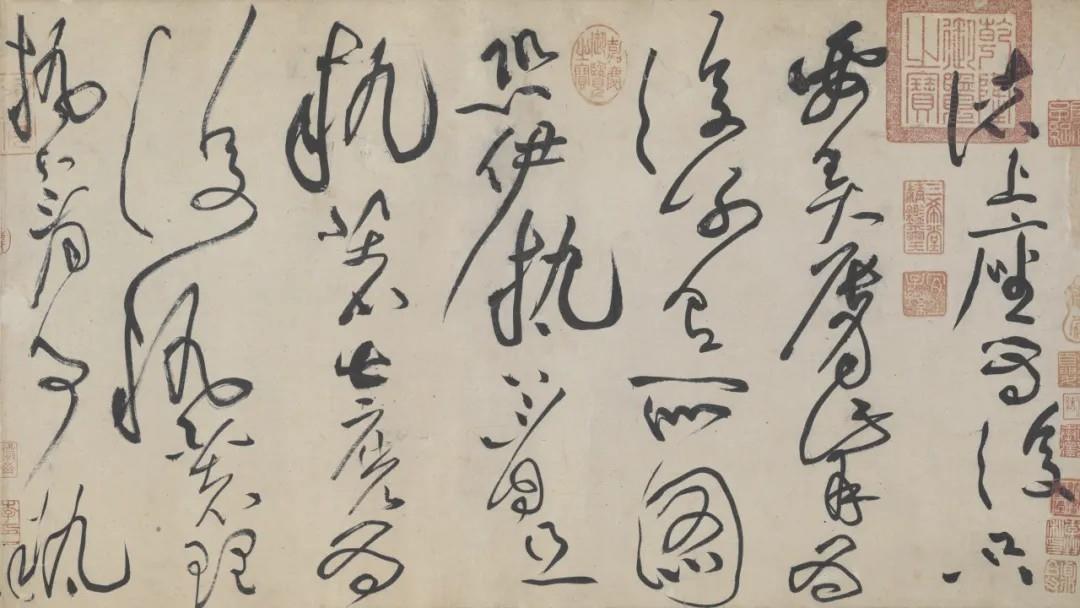 諸上座為復只
要弄脣觜為
復別有所圖
恐伊執著且
執著甚麼為
復執著理
執著事執
乾隆御覽之寶
三希堂精鑑璽
宜子孫
嘉慶御覽之寶